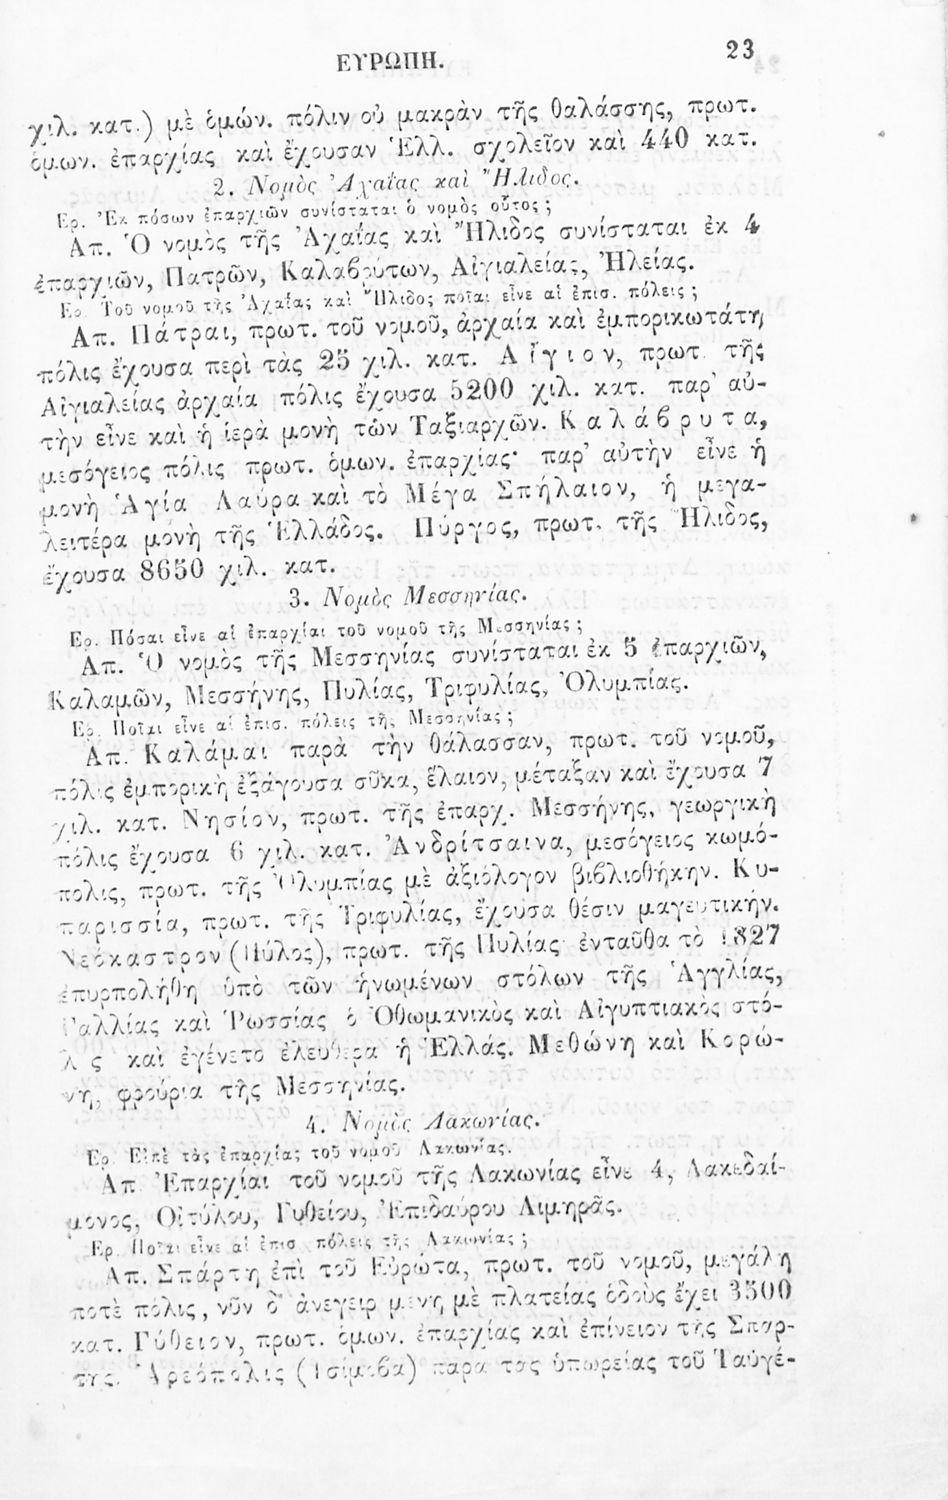 ΕΥΡΩΠΗ. 23
χιλ. κατ.) μὲ ὁμών. πόλιν οὐ μακρὰν τῆς θαλάσσης, πρωτ.
ὁμων. ἐπαρχίας καὶ ἔχουσαν Ἑλλ. σχολεῖον καὶ 440 κατ.
2. Νομὸς Ἀχαΐας καὶ Ἤλιδος.
Ερ. Ἐκ πόσων ἐπαρχιῶν συνίσταται ὁ νομὸς οὗτος;
Απ. Ὁ νομὸς τῆς Ἀχαΐας καὶ Ἤλιδος συνίσταται ἐκ 4
ἐπαρχιῶν, Πατρῶν, Καλαβρύτων, Αἰγιαλείας, Ἠλείας.
Ερ. Τοῦ νομοῦ τῆς Ἀχαΐας καὶ Ἤλιδος ποῖαι εἶνε αἱ ἐπισ. πόλεις;
Απ. Πάτραι, πρωτ. τοῦ νομοῦ, ἀρχαία καὶ ἐμπορικωτάτη
πόλις ἔχουσα περὶ τὰς 25 χιλ. κατ. Αἴγιον, πρωτ. τῆς
Αἰγιαλείας ἀρχαία πόλις ἔχουσα 5200 χιλ. κατ. παρ' αὐ-
τὴν εἶνε καὶ ἡ ἱερὰ μονὴ τῶν Ταξιαρχῶν. Καλάβρυτα,
μεσόγειος πόλις πρωτ. ὁμων. ἐπαρχίας· παρ' αὐτὴν εἶνε ἡ
μονὴ Ἁγία Λαύρα καὶ τὸ Μέγα Σπήλαιον, ἡ μεγα-
λειτέρα μονὴ τῆς Ἑλλάδος. Πύργος, πρωτ. τῆς Ἤλιδος,
ἔχουσα 8650 χιλ. κατ.
3. Νομὸς Μεσσηνίας.
Ερ. Πόσαι εἶνε αἱ ἐπαρχίαι τοῦ νομοῦ τῆς Μεσσηνίας;
Απ. Ὁ νομὸς τῆς Μεσσηνίας συνίσταται ἐκ 5 ἐπαρχιῶν,
Καλαμῶν, Μεσσήνης, Πυλίας, Τριφυλίας, Ὀλυμπίας.
Ερ. Ποῖαι εἶνε αἱ ἐπισ. πόλεις τῆς Μεσσηνίας;
Απ. Καλάμαι παρὰ τὴν θάλασσαν, πρωτ. τοῦ νομοῦ,
πόλις ἐμπορικὴ ἐξάγουσα σῦκα, ἔλαιον, μέταξαν καὶ ἔχουσα 7
χιλ. κατ. Νησίον, πρωτ. τῆς ἐπαρχ. Μεσσήνης, γεωργικὴ
πόλις ἔχουσα 6 χιλ. κατ. Ἀνδρίτσαινα, μεσόγειος κωμό-
πολις, πρωτ. τῆς Ὀλυμπίας μὲ ἀξιόλογον βιβλιοθήκην. Κυ-
παρισσία, πρωτ. τῆς Τριφυλίας, ἔχουσα θέσιν μαγευτικήν.
Νεόκαστρον (Πύλος), πρωτ. τῆς Πυλίας ἐνταῦθα τὸ 1827
ἐπυρπολήθη ὑπὸ τῶν ἡνωμένων στόλων τῆς Ἀγγλίας,
Γαλλίας καὶ Ῥωσσίας ὁ Ὀθωμανικὸς καὶ Αἰγυπτιακὸς στό-
λος καὶ ἐγένετο ἐλευθέρα ἡ Ἑλλάς. Μεθώνη καὶ Κορώ-
νη, φρούρια τῆς Μεσσηνίας.
4. Νομὸς Λακωνίας.
Ερ. Εἰπὲ τὰς ἐπαρχίας τοῦ νομοῦ Λακωνίας.
Απ. Ἐπαρχίαι τοῦ νομοῦ τῆς Λακωνίας εἶνε 4, Λακεδαί-
μονος, Οἰτύλου, Γυθείου, Ἐπιδαύρου Λιμηρᾶς.
Ερ. Ποῖαι εἶνε αἱ ἐπισ. πόλεις τῆς Λακωνίας;
Απ. Σπάρτη ἐπὶ τοῦ Εὐρώτα, πρωτ. τοῦ νομοῦ, μεγάλη
ποτὲ πόλις, νῦν δ' ἀνεγειρομένη μὲ πλατείας ὁδοὺς ἔχει 3500
κατ. Γύθειον, πρωτ. ὁμων. ἐπαρχίας καὶ ἐπίνειον τῆς Σπάρ-
της. Ἀρεόπολις (Τσίμοβα) παρὰ τὰς ὑπωρείας τοῦ Ταϋγέ-